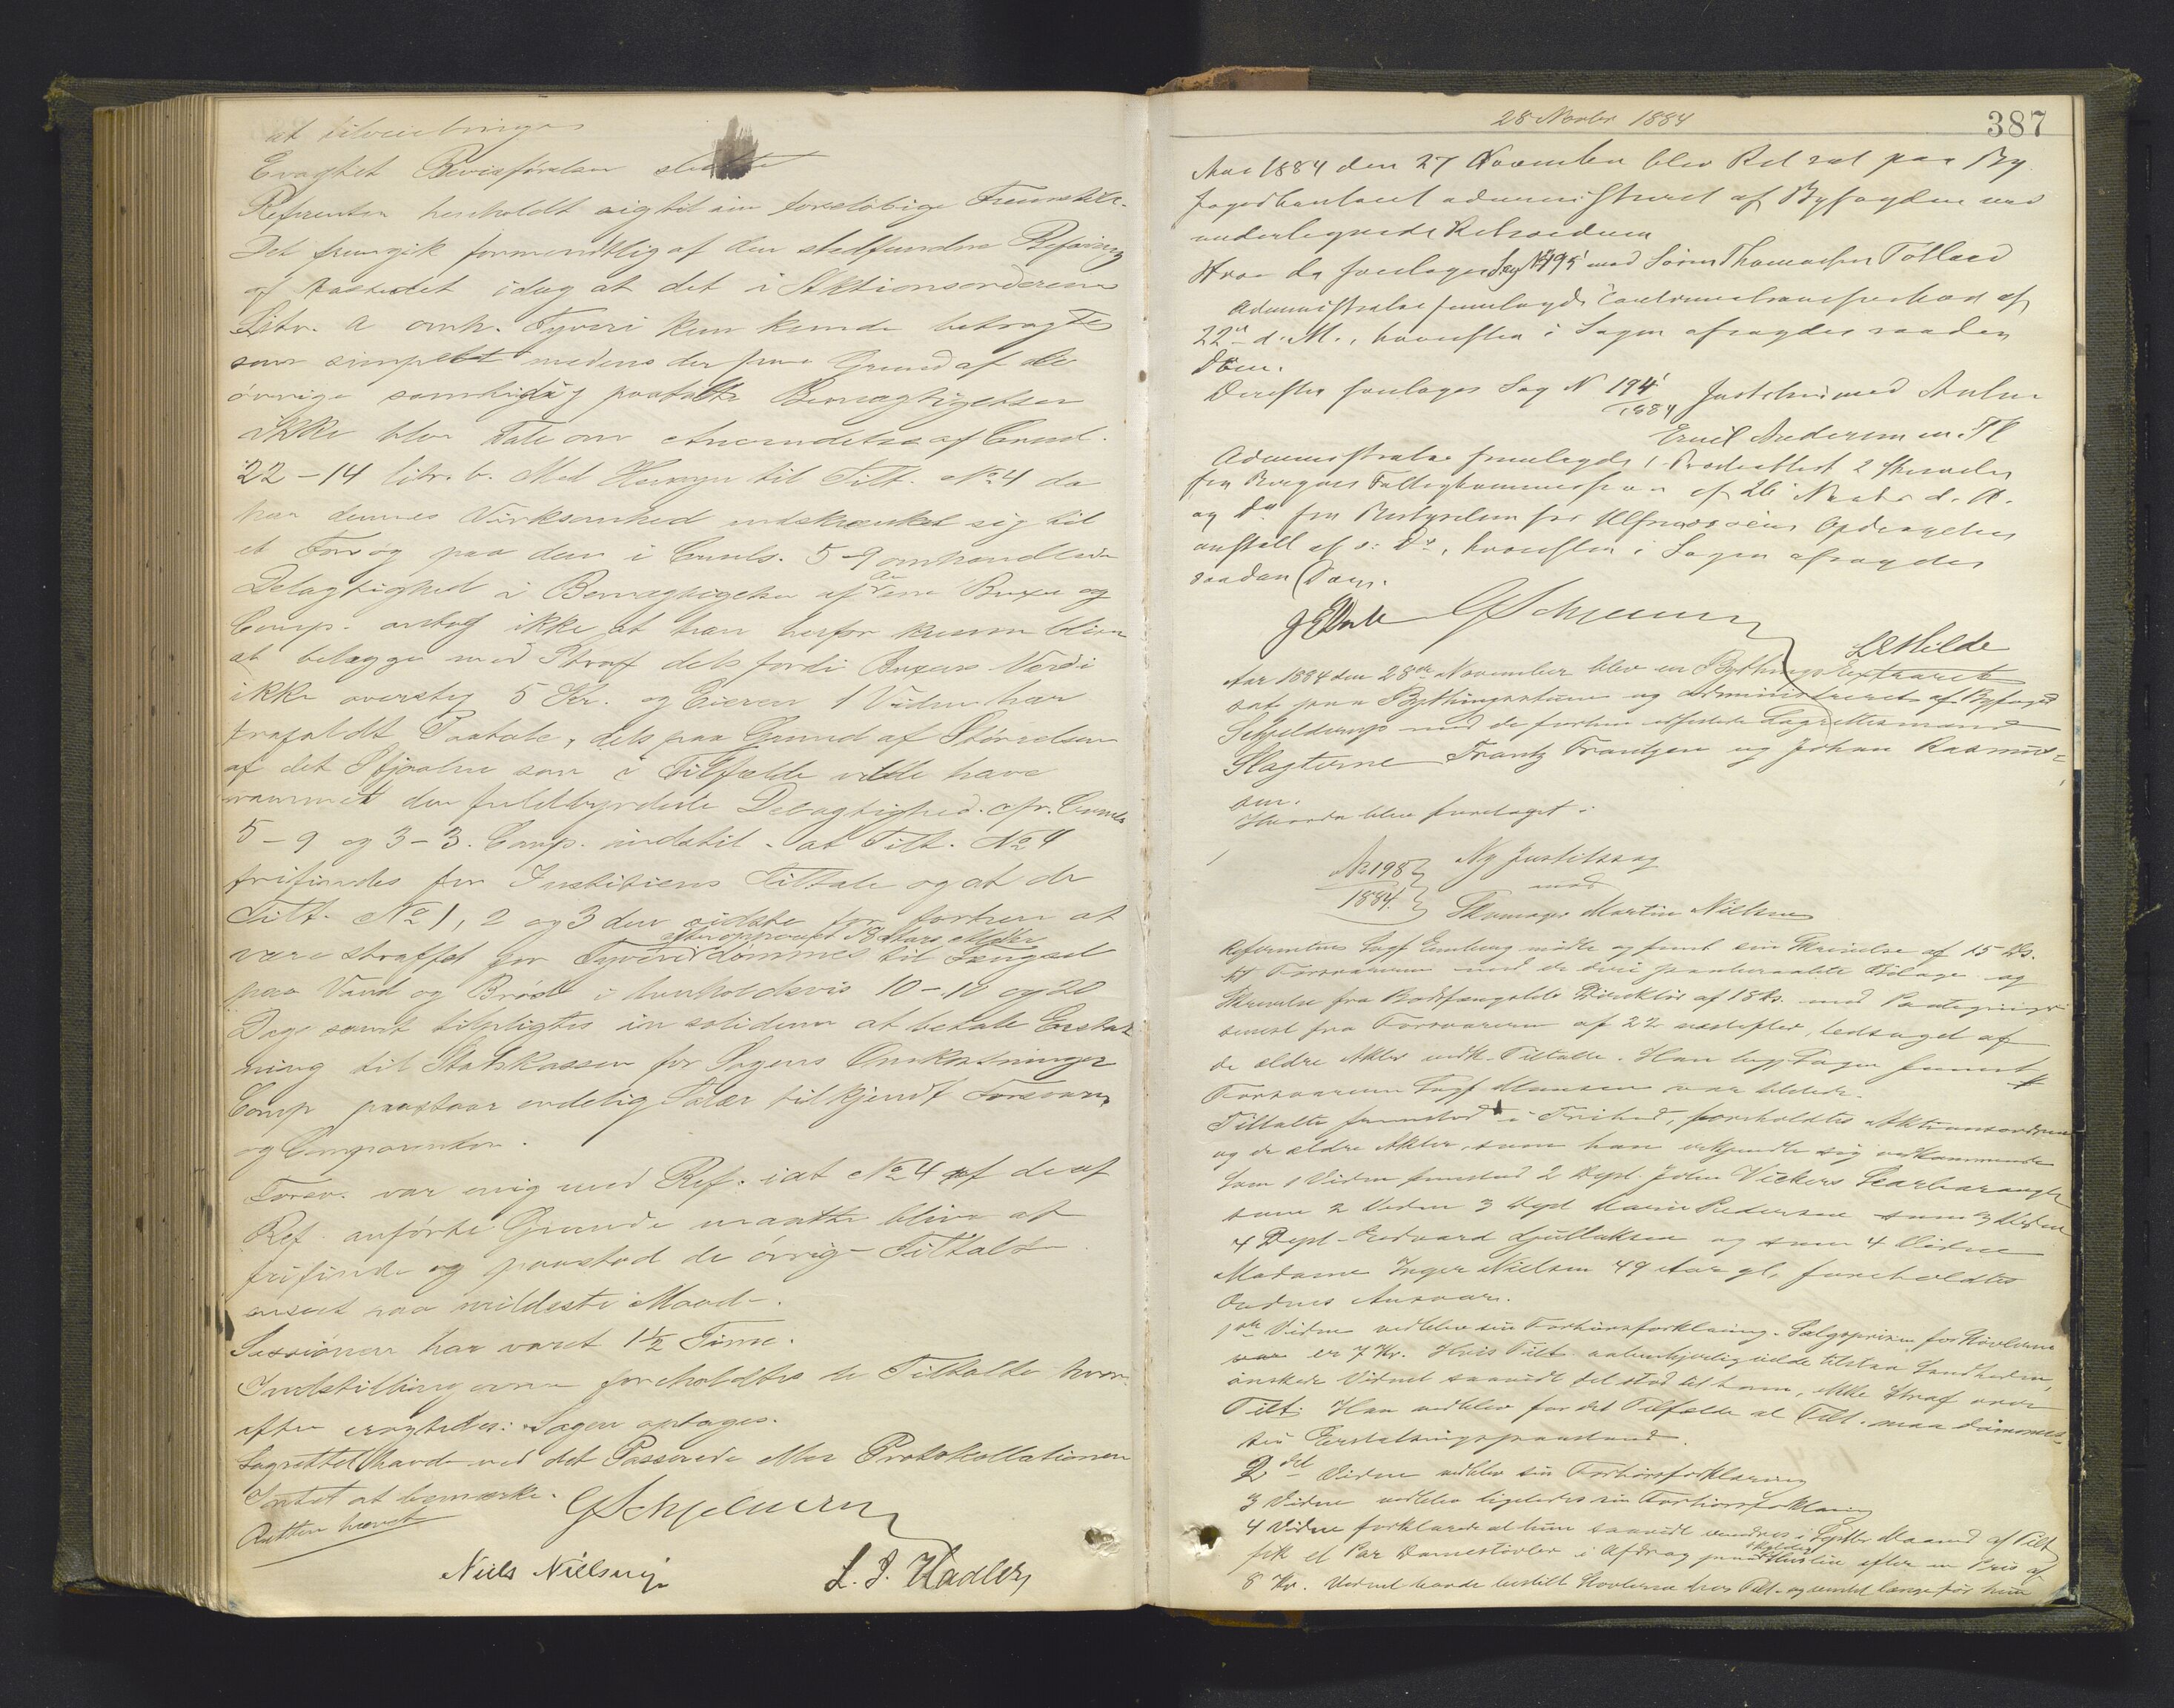 at tilveiebringes
Eragtet Bevisførelsen sluttet
Referenten henholdt sig til sin foreløbige Fremstill.
Det fremgik formentlig af den stedfundne Befaring
af Aastedet idag at det i Aktionsorderens
Litr. a omh. Tyveri kun kunde betragtes
som simpelt medens der paa Grund af de
øvrige samtidig paatalte Bemægtigelser
ikke blev Tale om Anvendelse af Criml.
22-14 litr. b. Med Hensyn til Tilt. No 4 da
har dennes Virksomhed indskrænket sig til
et Forsøg paa den i Crimls. 5-9 omhandlede
Delagtighed i Bemægtigelse af et Par Buxer og
Comp. antog ikke at han herfor kunde blive
at belægge med Straf dels fordi Buxens Værdi
ikke oversteg 5 Kr. og Eieren 1 Vidne har
frafaldt Paatale, dels paa Grund af Størrelsen
af det Stjaalne som i Tilfælde vilde have
rammet den fuldbyrdede Delagtighed. cfr. Crimls
5-9 og 3-3. Comp. indstil. at Tilt. No 4
frifindes for Justitiens Tiltale og at de
Tilt. No 1, 2 og 3 den sidste før forhen at
være straffet for Tyveri dømmes til Fængsel
paa Vand og Brød i henholdsvis 10-10 og 20
Dage samt tilpligtes in solidum at betale Erstat
ning til Statskassen for Sagens Omkostninger
Comp paastaar endelig Salær tilkjendt Forsvar,
og Comparenten.
Forsv. var enig med Ref. i at No 4 af de af
Ref. anførte Grunde maatte blive at
frifinde og paastod de øvrige Tiltalte
anseet paa mildeste Maade.
Sessionen har varet 1½ Time.
Indstillingerne foreholdtes de Tiltalte hvor-
efter eragtedes: Sagen optages.
Lagrettet havde ved det Passerede eller Protokollationen
Intet at bemærke.
Retten hævet
G Schjelderup
Niels Nielsen
L. J. Hadler
28 Novbr 1884
387
Aar 1884 den 27 November blev Ret sat paa By
fogedkontoret administreret af Byfogden med
undertegnede Retsvidner
Hvor da foretoges Sag No 195 mod Søren Thomassen Tolleer
Administrator fremlagde af
22de d. M., hvorefter i Sagen afsagdes saadan
Dom.
Derefter foretoges Sag N 194/1884 Justitsen mod Anton
Emil Andersen m. Fl
Administrator fremlagde 1 2 Skrivelser
fra Bergens Fattigkommission af 26 Novbr d. A.
og Do fra Bestyrelsen for Ulfsnesøens Opdragelses
anstalt af s. D., hvorefter i Sagen afsagdes
saadan Dom.
G Schjelderup
L E Hilde
Aar 1884 den 28de November blev en Bythings Extraret
sat paa Bythingsstuen og administreret af Byfoged
Schjelderup med de forhen edfæstede Lagrettesmænd
Slagterne Frantz Frantzen og Johan Rasmus-
sen.
Hvorda blev foretaget:
1
No 198/1884.
Ny Justitssag
mod
Skomager Martin Nielsen
Referenten Sagf. mødte og freml. sin Skrivelse af 15 ds.
til Forsvareren med de deri paaberaabte Bilage og
Skrivelse fra Bodsfængslets Direktør af 18 ds. med Paategning
senest fra Forsvareren af 22 næstefter, ledsaget af
de ældre Akter vedk. Tiltalte. Han beg. Sagen fremmet
Forsvareren Sagf. Monsen var tilstede.
Tiltalte fremstod i Frihed, foreholdtes Aktionsordren
og de ældre Akter, som han vedkjendte sig vedkommende
Som 1 Vidne fremstod 2 Dept John Vickers Scarborough
som 2 Vidne 3 Dept Karen Pedersen som 3 Vidne
4 Dept Edvard Gjulluksen og som 4 Vidne
Madame Inger Nielsen 49 Aar gl., foreholdtes
Eedens Ansvar.
1ste Vidne vedblev sin Forhørsforklaring. Salgsprisen for Støvlerne
er 7 Kr. Hvis Tilt. aabenhjertig vilde tilstaa Sandheden,
ønskede Vidnet saavidt det stod til ham, ikke Straf over
Tilt. Han vedblev for det Tilfælde at Tilt. maa dømmes
sin Erstatningspaastand.
2det Vidne vedblev sin Forhørsforklaring
3 Vidne vedblev ligeledes sin Forhørsforklaring
4 Vidne forklarede at hun saavidt erindres i Septbr Maaned af Tilt
fik et Par Damestøvler i Afdrag paa skyldig Husleie efter en Pris af
8 Kr. Vidnet havde bestilt Støvlerne hos Tilt. og ventet længe før hun